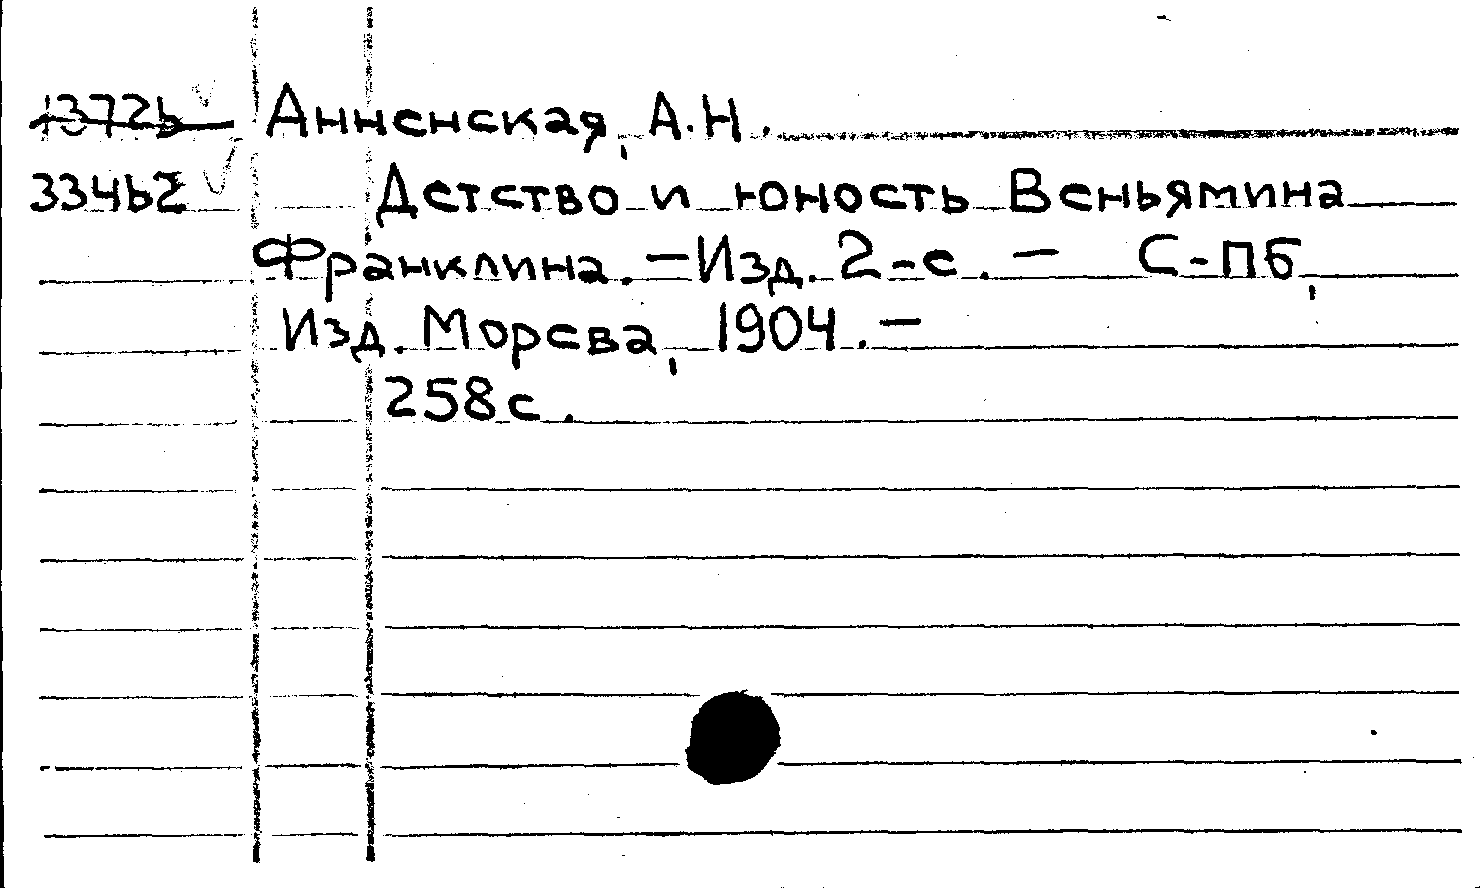 13726 Анненская, А.Н.
33462 Детство и юность Веньямина
Франклина. — Изд. 2-е. — С-ПБ,
Изд. Морева, 1904. —
258с.